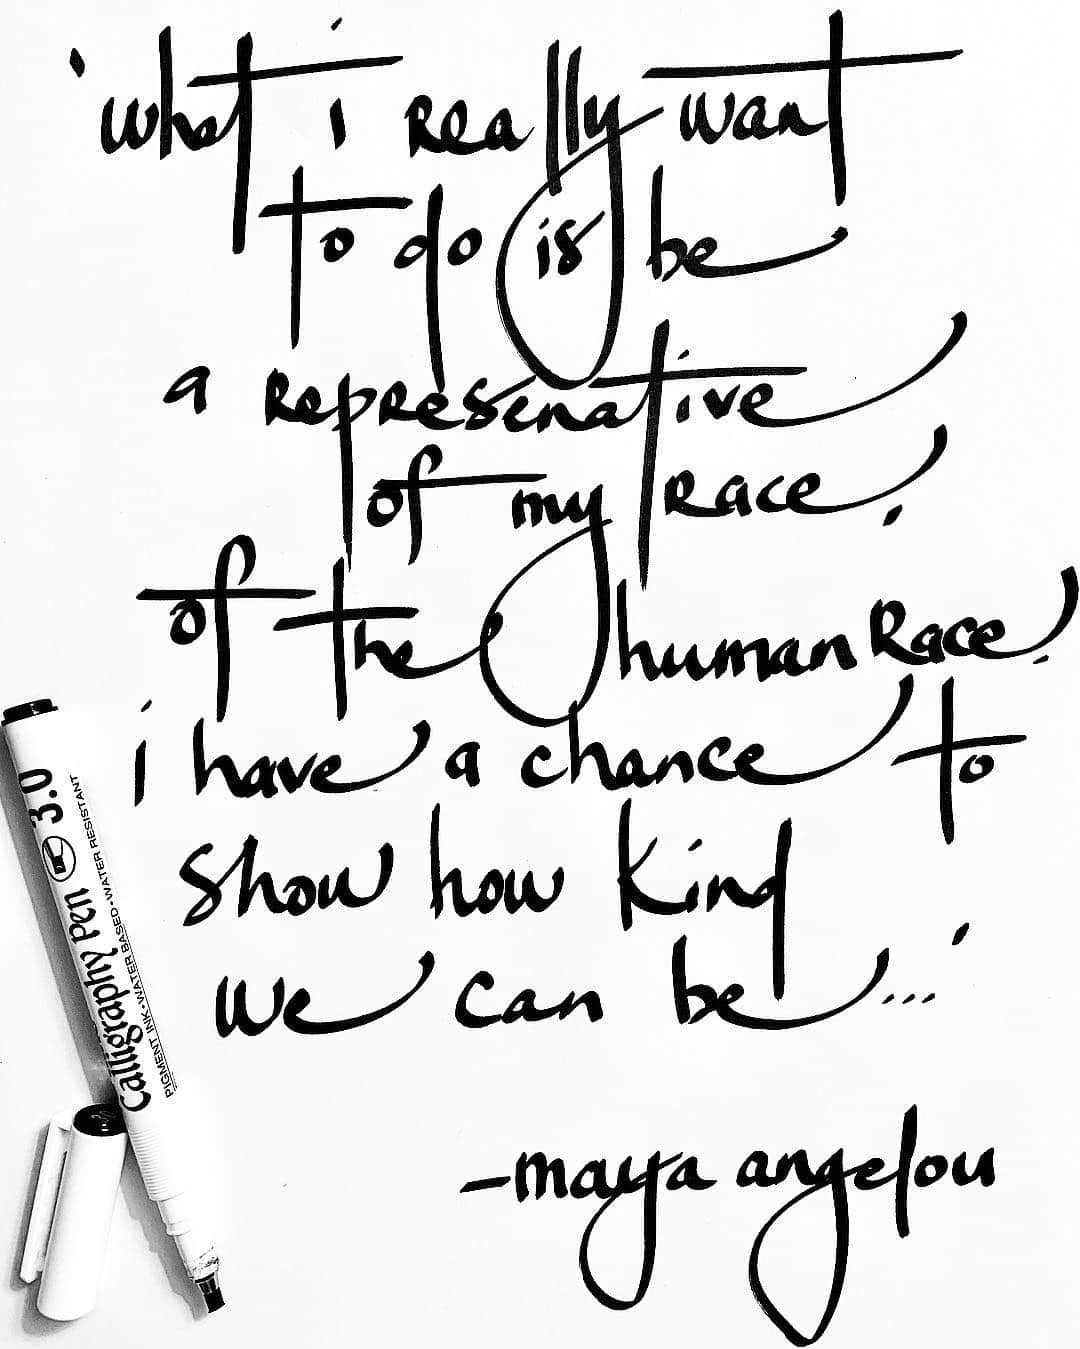 'what i really want
to do is be
a represenative
of my race.
of the human Race.
i have a chance to
show how kind
we can be...'
-maya angelou
Calligraphy Pen 3.0
PIGMENT INK•WATER BASED•WATER RESISTANT